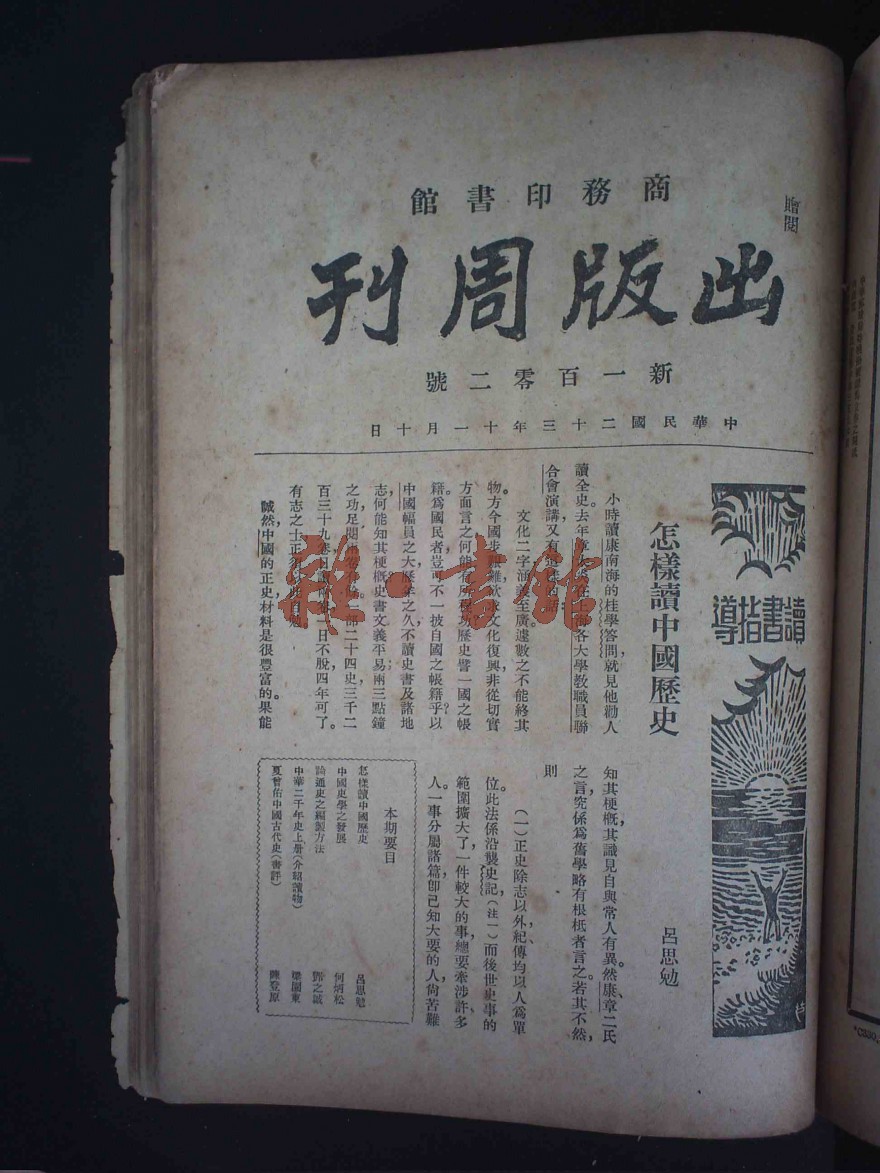 贈閱
商務印書館
出版周刊
新一百零二號
中華民國二十三年十一月十日
讀書指導
怎樣讀中國歷史
呂思勉
小時讀康南海的桂學答問，就見他勸人
讀全史，去年章太炎在上海各大學教職員聯
合會演講，又有這樣的話：
文化二字涵義至廣，遽數之不能終其
物。方今國步艱難，欲求文化復興，非從切實
方面言之，何能有所成功。歷史譬一國之帳
籍。爲國民者，豈可不一披自國之帳籍乎？以
中國幅員之大，歷年之久，不讀史書及諸地
志，何能知其梗概？史書文義平易，兩三點鐘
之功，足閱兩卷有餘。一部二十四史，三千二
百三十九卷，日讀兩卷，一日不脫，四年可了。
有志之士，正須以此自勉。
誠然，中國的正史，材料是很豐富的。果能
知其梗概，其識見自與常人有異。然康、章二氏
之言，究係爲舊學略有根柢者言之。若其不然，
則
（一）正史除志以外，紀傳均以人爲單
位。此法係沿襲史記，（注一）而後世史事的
範圍擴大了，一件較大的事，總要牽涉許多
人。一事分屬諸篇，卽已知大要的人，尙苦難
本期要目
怎樣讀中國歷史 呂思勉
中國史學之發展 何炳松
論通史之編製方法 鄧之誠
中華二千年史上册（介紹讀物） 梁園東
夏曾佑中國古代史（書評） 陳登原
雜·書館